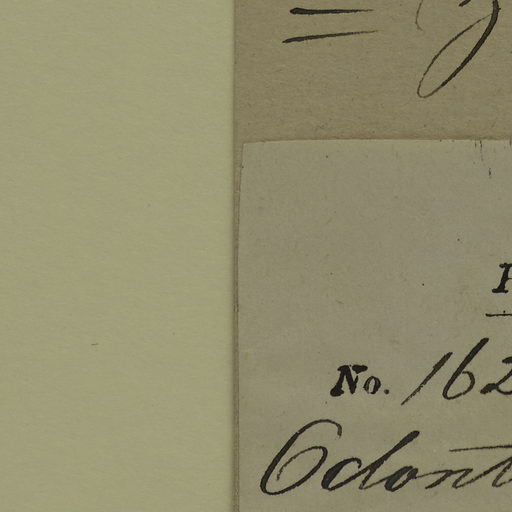 =
No. 162
Odont